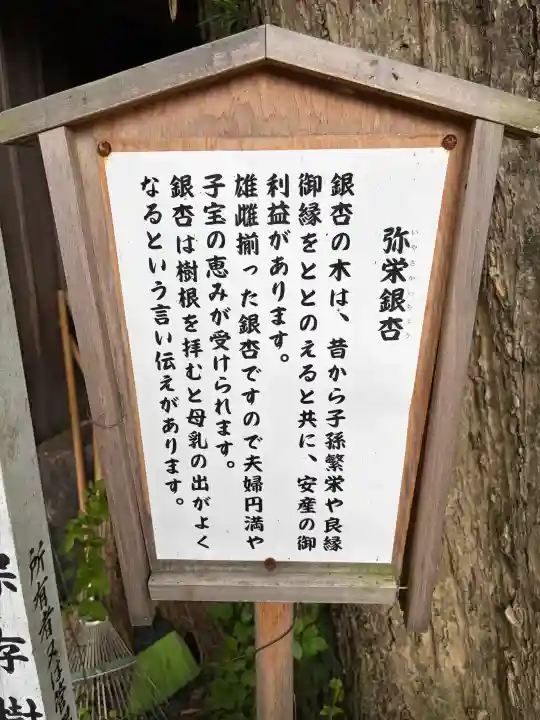 弥栄銀杏
いやさかいちょう
銀杏の木は、昔から子孫繁栄や良縁
御縁をととのえると共に、安産の御
利益があります。
雄雌揃った銀杏ですので夫婦円満や
子宝の恵みが受けられます。
銀杏は樹根を拝むと母乳の出がよく
なるという言い伝えがあります。
所有者又は管
保存樹